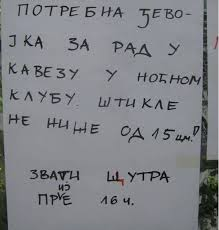 ПОТРЕБНА ЂЕВО-
ЈКА ЗА РАД У
КАВЕЗУ У НОЋНОМ
КЛУБУ. ШТИКЛЕ
НЕ НИЖЕ ОД 15 цм.!
ЗВАТИ ЩУТРА
ПРИЈЕ 16 ч.